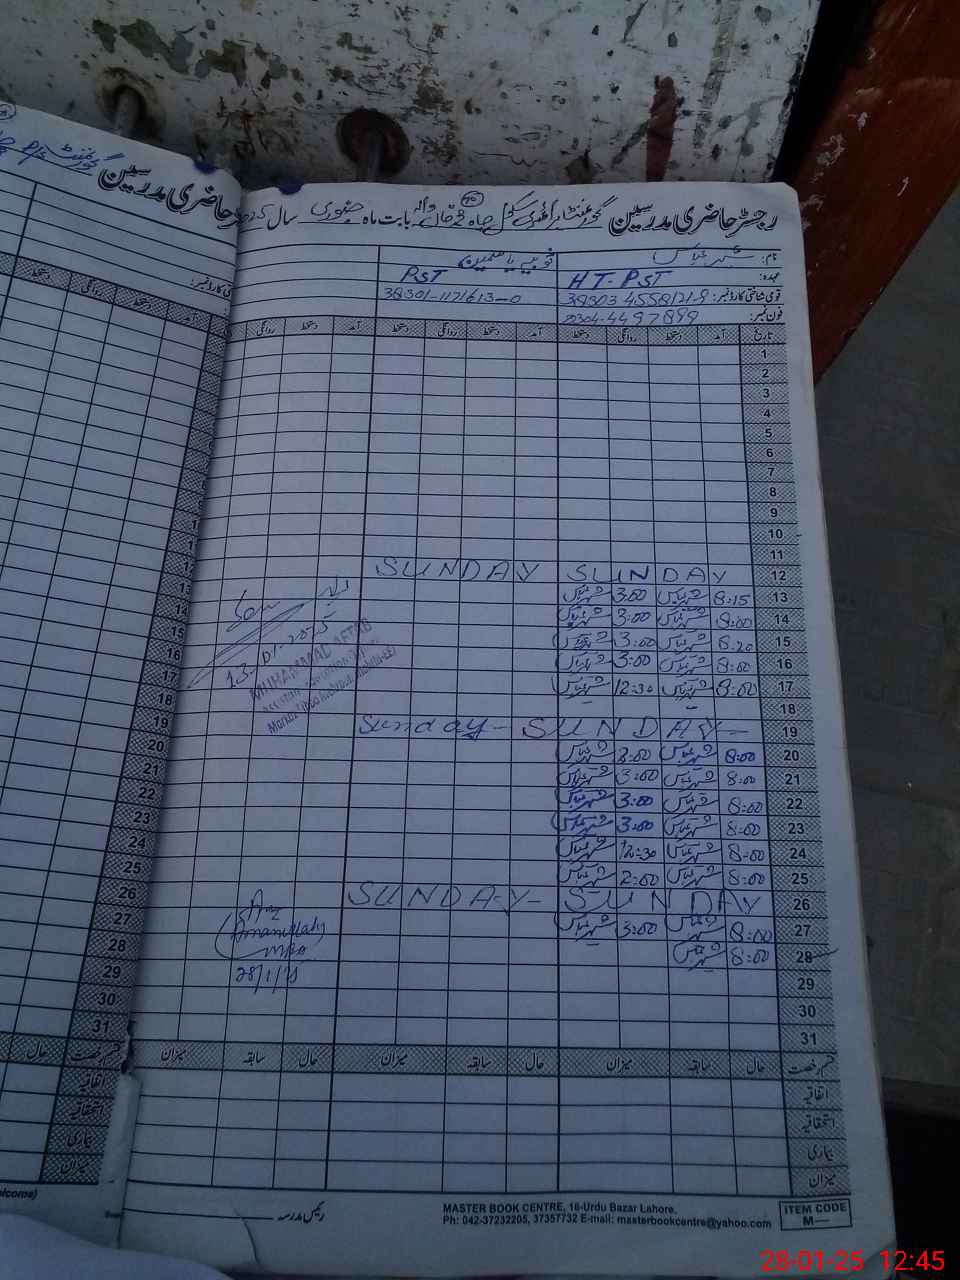 رجسٹر حاضری مدرسین گورنمنٹ پرائمری سکول چاہ بابت ماہ جنوری سال
حاضری مدرسین گورنمنٹ
نام: شہر عباس
ثوبیہ یاسمین
عہدہ: HT-PST
PST
قومی شناختی کارڈ نمبر: 38303 4558121-9
38301-1171613-0
فون نمبر: 0304-4497899
تاریخ آمد دستخط روانگی دستخط آمد دستخط روانگی دستخط آمد دستخط
1
2
3
4
5
6
7
8
9
10
11
12 SUNDAY SUNDAY
13 8:15 شہر عباس 3:00 شہر عباس
14 8:00 شہر عباس 3:00 شہر عباس
15 8:20 شہر عباس 3:00 شہر عباس
16 8:00 شہر عباس 3:00 شہر عباس
17 8:00 شہر عباس 12:30 شہر عباس
18
19 SUNDAY- Sunday-
20 8:00 شہر عباس 3:00 شہر عباس
21 8:00 شہر عباس 3:00 شہر عباس
22 8:00 شہر عباس 3:00 شہر عباس
23 8:00 شہر عباس 3:00 شہر عباس
24 8:00 شہر عباس 12:30 شہر عباس
25 8:00 شہر عباس 2:00 شہر عباس
26 SUNDAY SUNDAY-
27 8:00 شہر عباس 3:00 شہر عباس
28 8:00 شہر عباس
29
30
31
13.01.2025
MUHAMMAD AFTAB
Amanullah
28/1/25
قسم رخصت حال سابقہ میزان حال سابقہ میزان حال سابقہ میزان
اتفاقیہ
استحقاقیہ
بیماری
میزان
رئیس مدرسہ
MASTER BOOK CENTRE, 16-Urdu Bazar Lahore,
Ph: 042-37232205, 37357732 E-mail: masterbookcentre@yahoo.com
ITEM CODE
M—
28-01-25 12:45